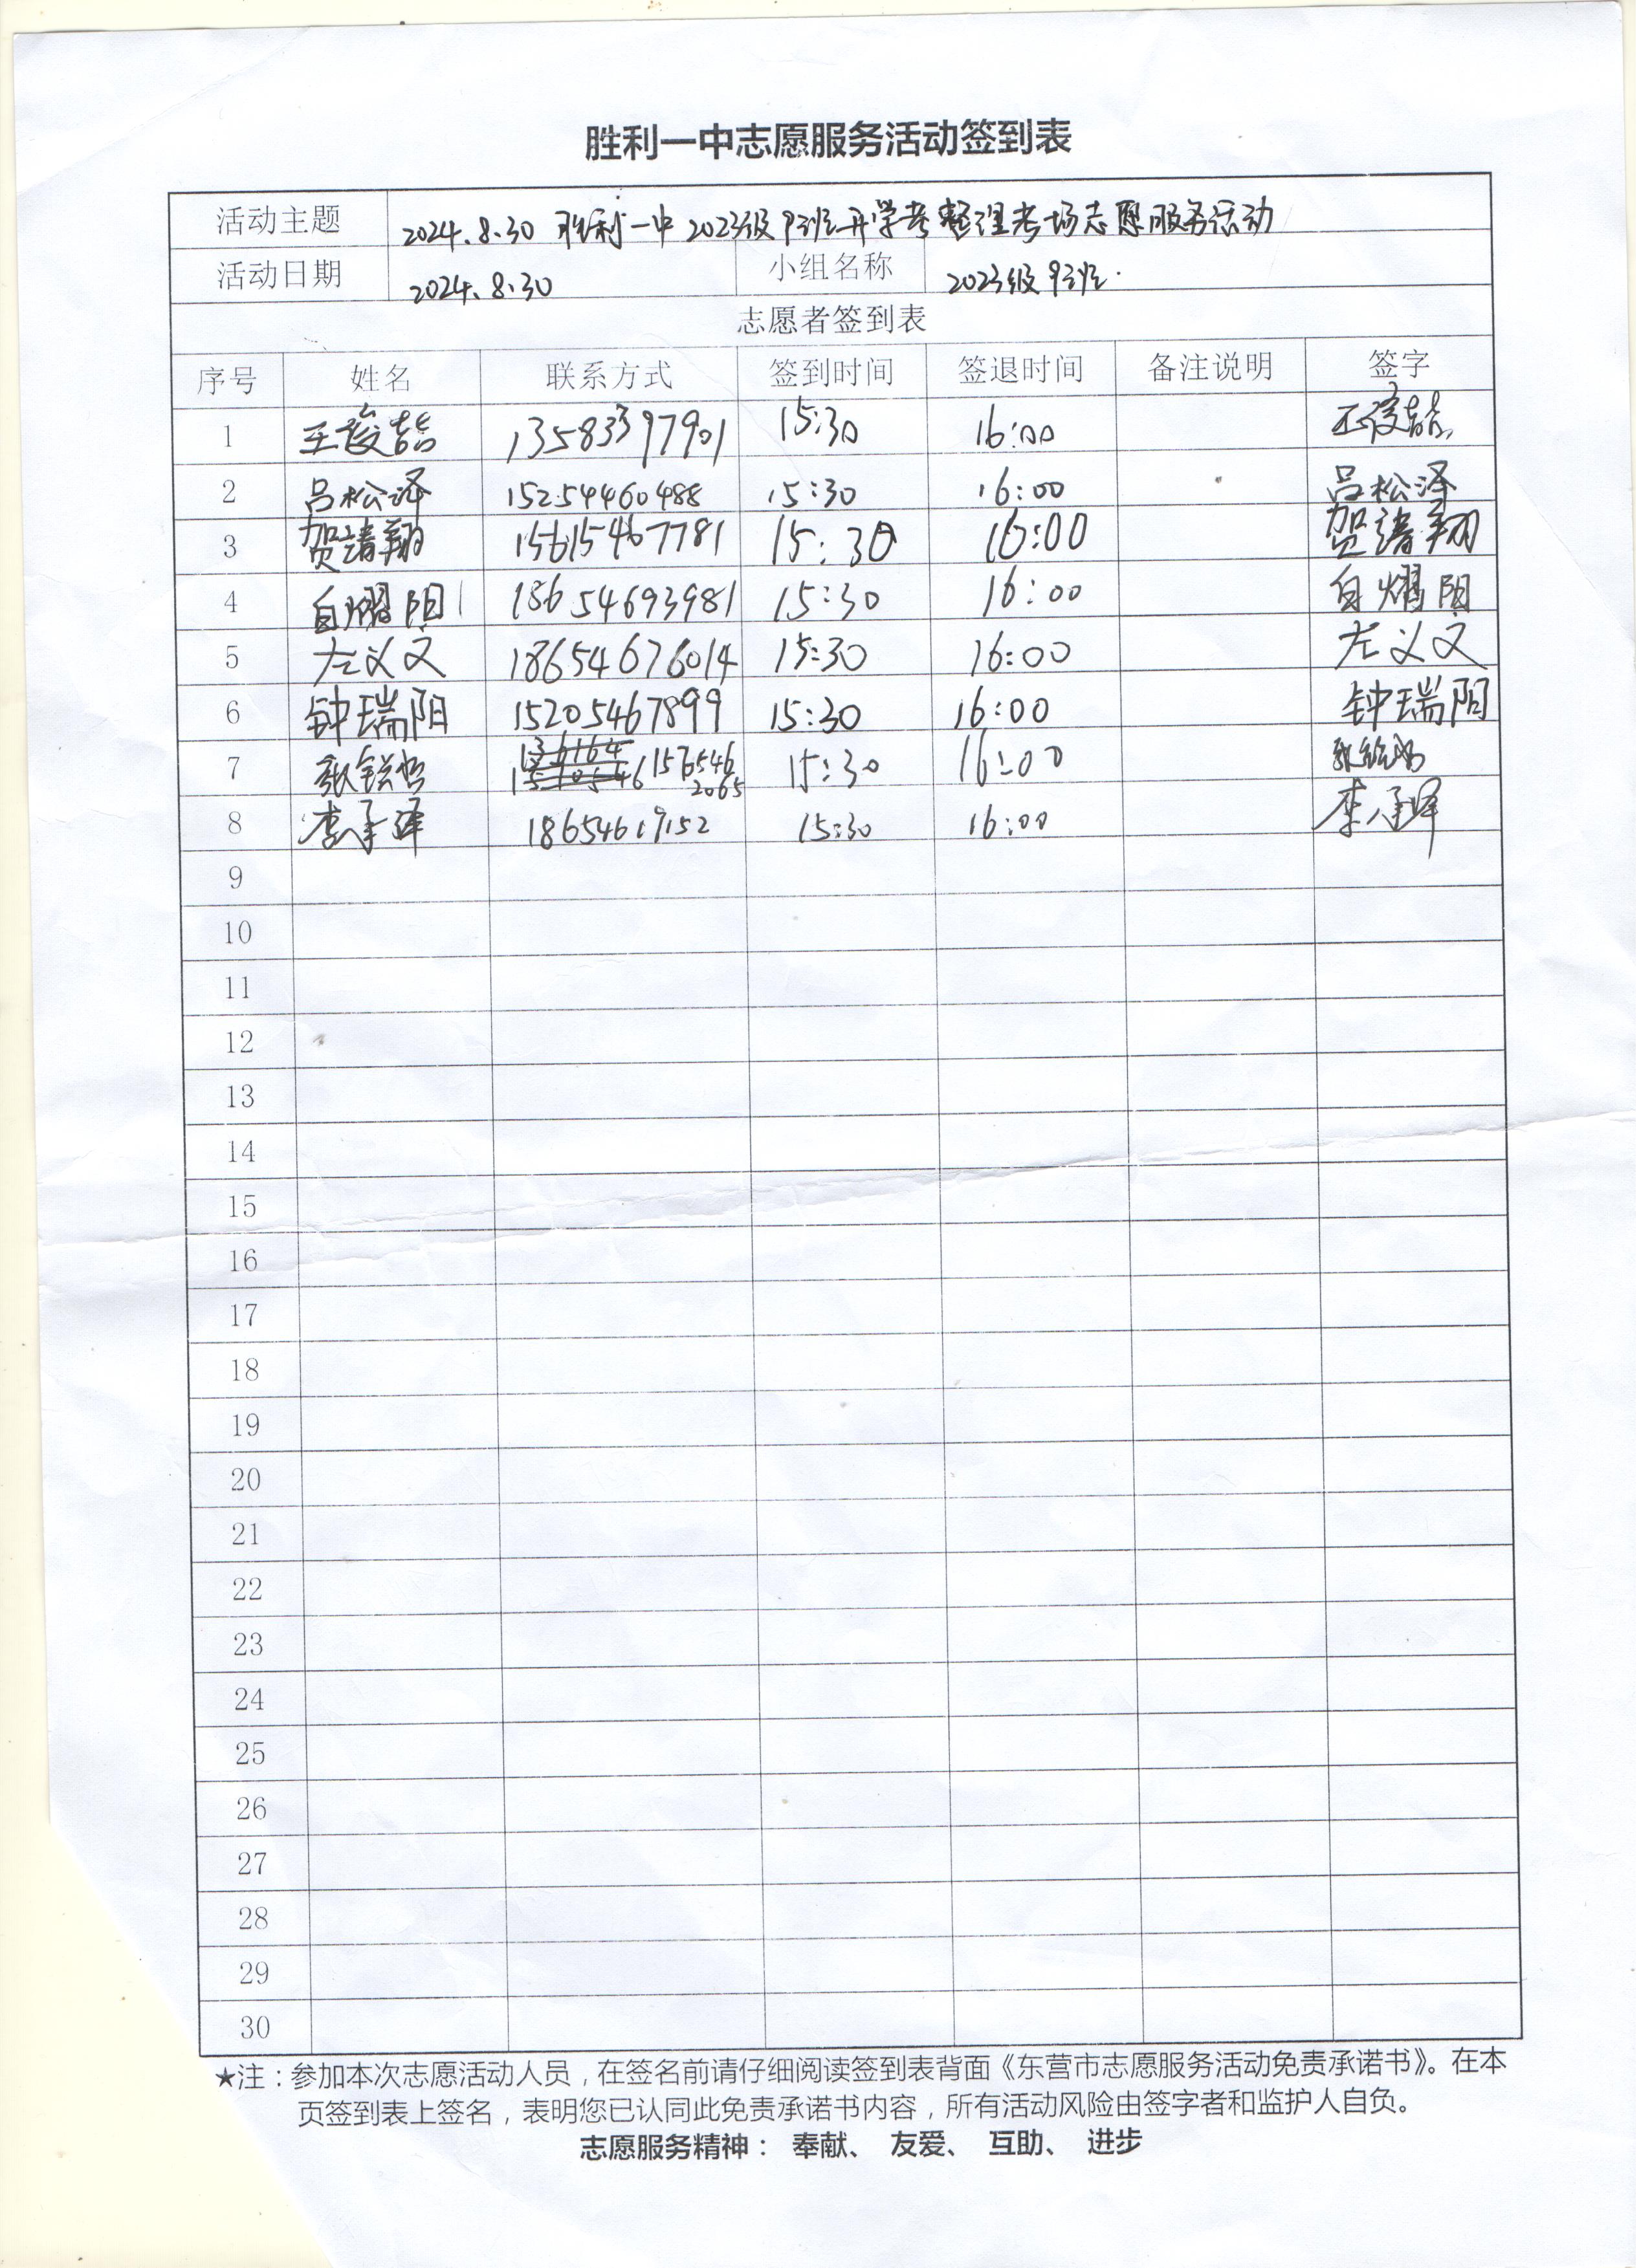 胜利一中志愿服务活动签到表
活动主题 2024.8.30 胜利一中2023级9班开学考整理考场志愿服务活动
活动日期 2024.8.30 小组名称 2023级9班.
志愿者签到表
序号 姓名 联系方式 签到时间 签退时间 备注说明 签字
1 王俊喆 13583397901 15:30 16:00 王俊喆
2 吕松泽 15254460488 15:30 16:00 吕松泽
3 贺靖翔 15615467781 15:30 16:00 贺靖翔
4 白熠阳 18654693981 15:30 16:00 白熠阳
5 左义文 18654676014 15:30 16:00 左义文
6 钟瑞阳 15205467899 15:30 16:00 钟瑞阳
7 15:30 16:00
8 李承泽 18654619152 15:30 16:00 李承泽
9
10
11
12
13
14
15
16
17
18
19
20
21
22
23
24
25
26
27
28
29
30
★注：参加本次志愿活动人员，在签名前请仔细阅读签到表背面《东营市志愿服务活动免责承诺书》。在本
页签到表上签名，表明您已认同此免责承诺书内容，所有活动风险由签字者和监护人自负。
志愿服务精神： 奉献、 友爱、 互助、 进步